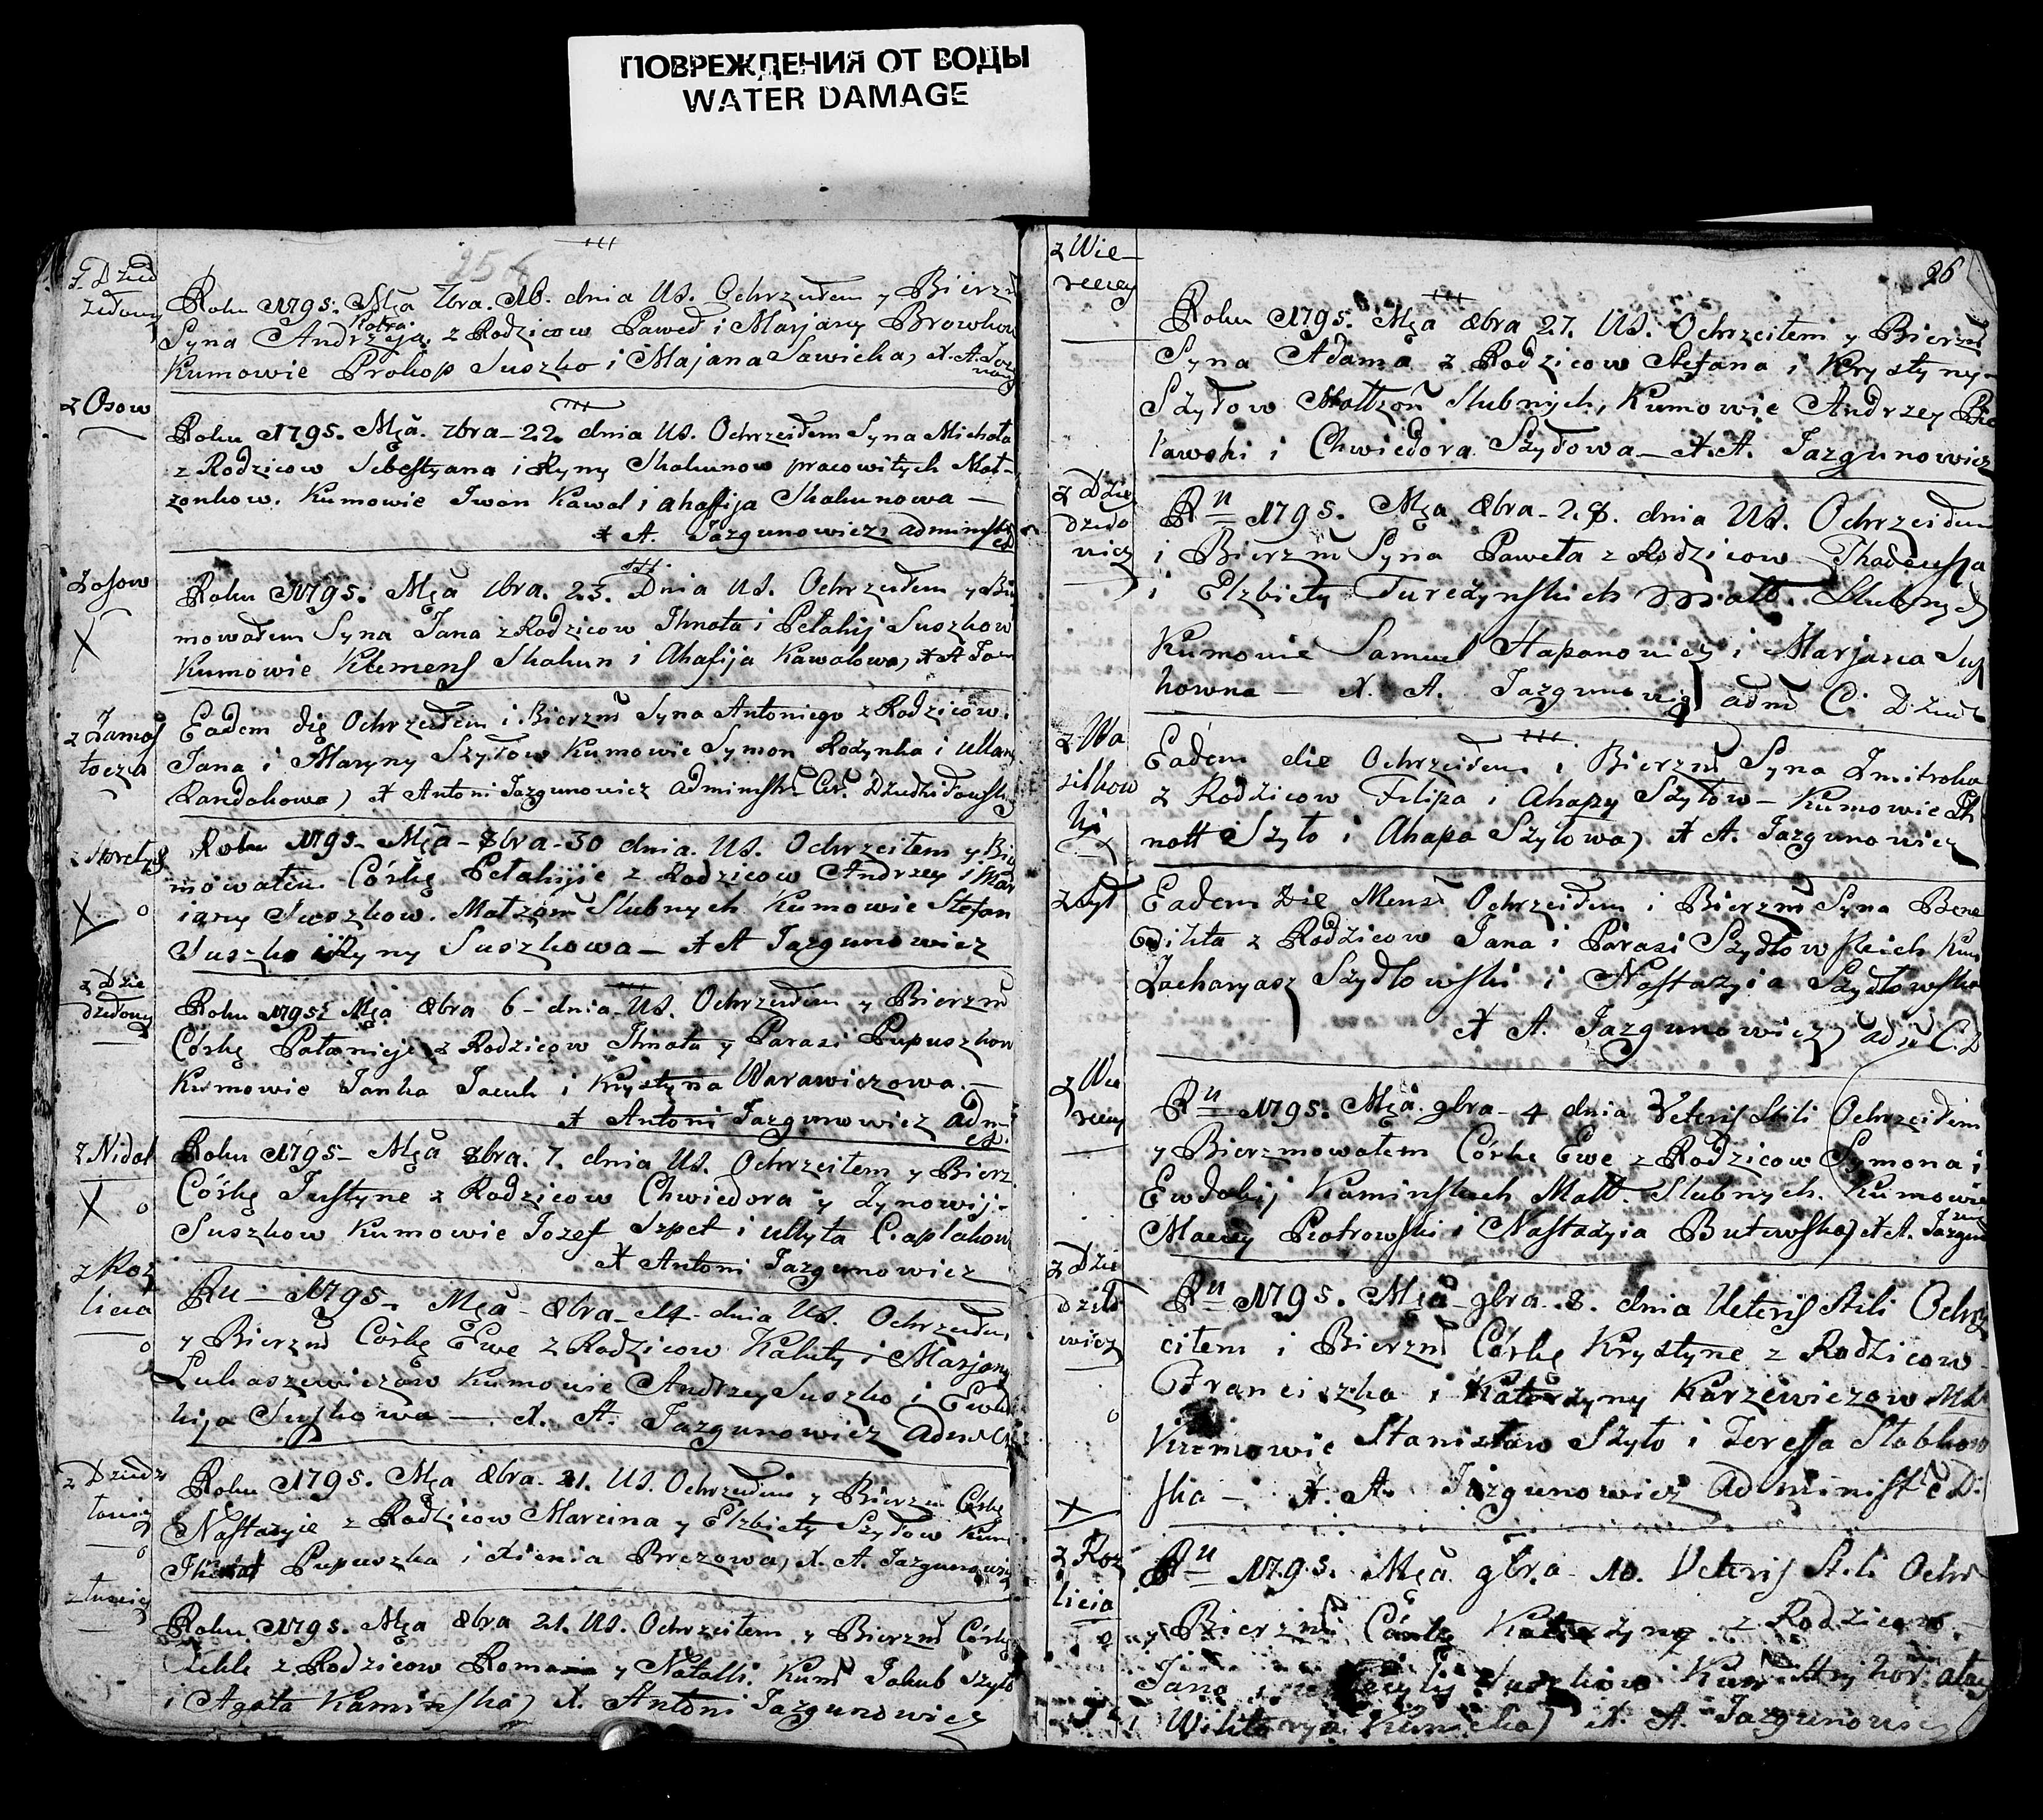 ПОВРЕЖДЕНИЯ ОТ ВОДЫ
WATER DAMAGE
254
z Dzied
zidowicz
Roku 1795. Mca 7bra. 16. dnia V.S. Ochrzciłem y Bierzm
Syna Andrzeja z Rodzicow Paweł i Marjany Browkow
Kumowie Prokop Suszko i Majana Sawicka, X. A. Jaz
z Osow
Roku 1795. Mca. 7bra - 22. dnia V.S. Ochrzciłem Syna Michała
z Rodzicow Sebestyana i Ryny Skakunow pracowitych Mał-
żonkow. Kumowie Iwan Kawal i Ahafija Skakunowa —
X A. Jazgunowicz administ
z Osow
Roku 1795. Mca 7bra. 23. Dnia V.S. Ochrzciłem y Bie
mowałem Syna Jana z Rodzicow Ihnata i Pełahij Suszkow
Kumowie Klemens Skakun i Ahafija Kawalowa, X A Jaz
z Zamos
tocza
Eadem die Ochrzciłem i Bierzm Syna Antoniego z Rodzicow.
Jana i Maryny Szyłow Kumowie Symon Rodynka i Ullana
Kandakowa) X Antoni Jazgunowicz Administr. Cer. Dziedziłowsk
Roku 1795 - Mca - 8bra - 30 dnia. V.S. Ochrzciłem y Bie
mowałem Córkę Pełahije z Rodzicow Andrzey i Mar
iany Suszkow. Małżon Slubnych Kumowie Stefan
Suszko i Ryny Suszkowa — X A Jazgunowicz
z Dzie
Roku 1795 Mca 8bra 6 - dnia V.S. Ochrzciłem y Bierzm
Córkę Połonieje z Rodzicow Ihnata y Parasi Pupuszkow
Kumowie Janka Jacuk i Krystyna Warawiczowa. —
X Antoni Jazgunowicz adm
z Nidal
Roku 1795 - Mca 8bra. 7. dnia V.S. Ochrzciłem y Bierz
Córkę Justyne z Rodzicow Chwiedora y Zynowij -
Suszkow Kumowie Jozef Szpet i Ullyta Czaplakow
X Antoni Jazgunowicz
z Roz
licia
Ru — 1795 - Mca - 8bra - 14 - dnia V.S. Ochrzciłem
y Bierzm Córkę Ewe z Rodzicow Kaluty i Marjany
Lukaszewiczow Kumowie Andrzey Suszko i Ewdo
kija Suszkowa — X. A. Jazgunowicz Adm
Roku 1795. Mca 8bra - 21. V.S. Ochrzciłem y Bierzm Córkę
Nastazyie z Rodzicow Marcina y Elzbiety Szyłow Kum
Ihnat Pupuszka i Xienia Brezowa, X. A. Jazgunowicz
Roku 1795. Mca 8bra 21. V.S. Ochrzciłem y Bierzm Córkę
Tekle z Rodzicow Romana y Natalli. Kum Jakub Szyło
i Agata Kaminska) X. Antoni Jazgunowicz
26
z Wie-
reicy
Roku 1795. Mca 8bra 27. V.S. Ochrzciłem y Bierzm
Syna Adama z Rodzicow Stefana i Krystyny -
Szyłow Małżon Slubnych, Kumowie Andrzey Bie
ławski i Chwiedora Szyłowa — X. A. Jazgunowicz
z Dzie
dzido
wicz
Ru 1795. Mca 8bra - 28. dnia V.S. Ochrzciłem
i Bierzm Syna Pawła z Rodzicow Thadeusza
i Elzbiety Tureczynskich Małż. Slubnych
Kumowie Samuel Hapanowicz i Marjana Sus
kowna — X. A. Jazgunowicz adm C. Dzied
z Wa
silkow
Eadem die Ochrzciłem i Bierzm Syna Zmitroka
z Rodzicow Filipa i Ahapy Szyłow — Kumowie Ih
natt Szyło i Ahapa Szyłowa) X A. Jazgunowicz
Eadem Die Mense Ochrzciłem i Bierzm Syna Bene
dikta z Rodzicow Jana i Parasi Szydłowskich Kum
Zacharyasz Szydłowski i Nastazyia Szydłowska
X A. Jazgunowicz, ad C. D
z Wie
reicy
Ru 1795. Mca. 9bra - 4 dnia Veteris Stili Ochrzciłem
y Bierzmowałem Córkę Ewe z Rodzicow Symona i
Ewdokij Kaminskich Małż - Slubnych. Kumowie
Maciey Piotrowski i Nastazyia Butewska) X A. Jazgun
z Dzie
dziło
wicz
Ru 1795. Mca - 9bra - 8. dnia Veteris Stili Ochrz
ciłem i Bierzm Córkę Krystyne z Rodzicow -
Franciszka i Katarzyny Karzewiczow Mał
Kumowie Stanisław Szyło i Teressa Słabkow
ska — X. A. Jazgunowicz Administ C D.
z Roz
licia
Ru 1795. Mca 9bra - 10. Veteris Stili Ochr
y Bierzm Córkę Katarzyne z Rodzicow -
Jana i Suszkow Kum
i Wiktoryia X. A. Jazgunowicz